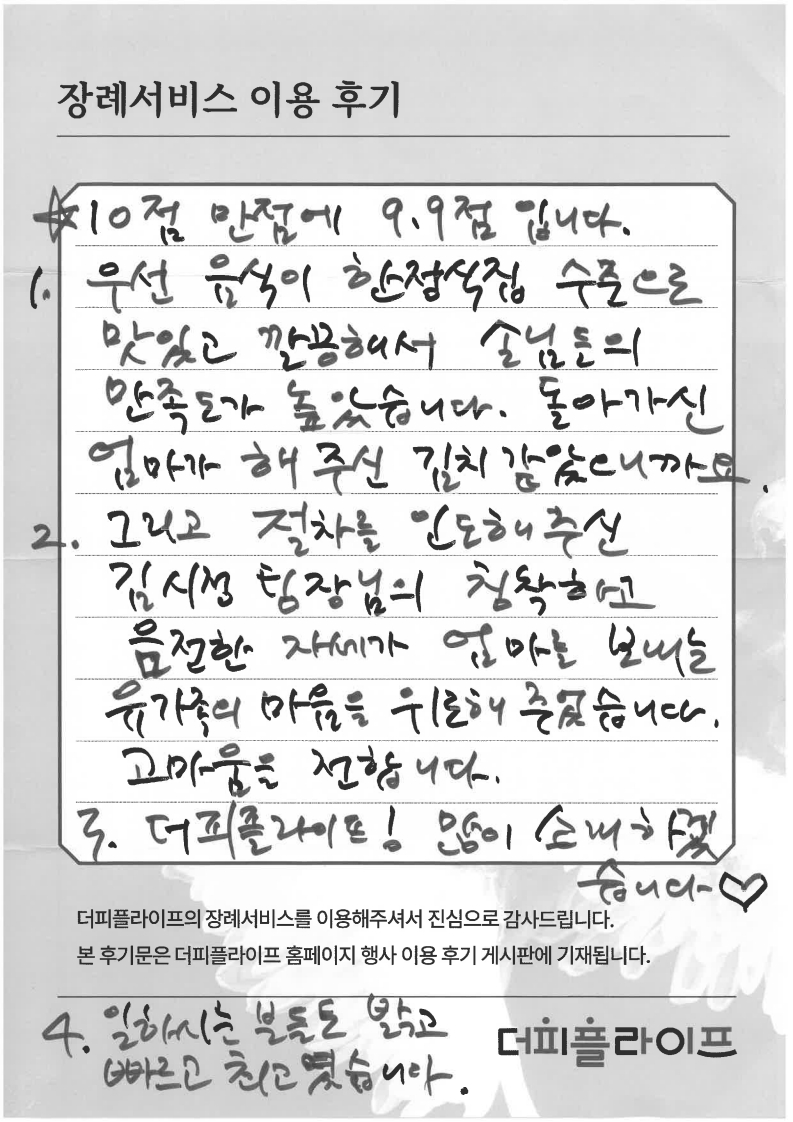 장례서비스 이용 후기
☆10점 만점에 9.9점 입니다.
1. 우선 음식이 한정식집 수준으로
맛있고 깔끔해서 손님들의
만족도가 높았습니다. 돌아가신
엄마가 해 주신 김치 같았으니까요.
2. 그리고 절차를 인도해 주신
김시정 팀장님의 침착하고
음전한 자세가 엄마를 보내는
유가족의 마음을 위로해 주었습니다.
고마움을 전합니다.
3. 더피플라이프! 많이 소개하겠
습니다♡
더피플라이프의 장례서비스를 이용해주셔서 진심으로 감사드립니다.
본 후기문은 더피플라이프 홈페이지 행사 이용 후기 게시판에 기재됩니다.
4. 일하시는 분들도 밝고
빠르고 최고였습니다.
더피플라이프